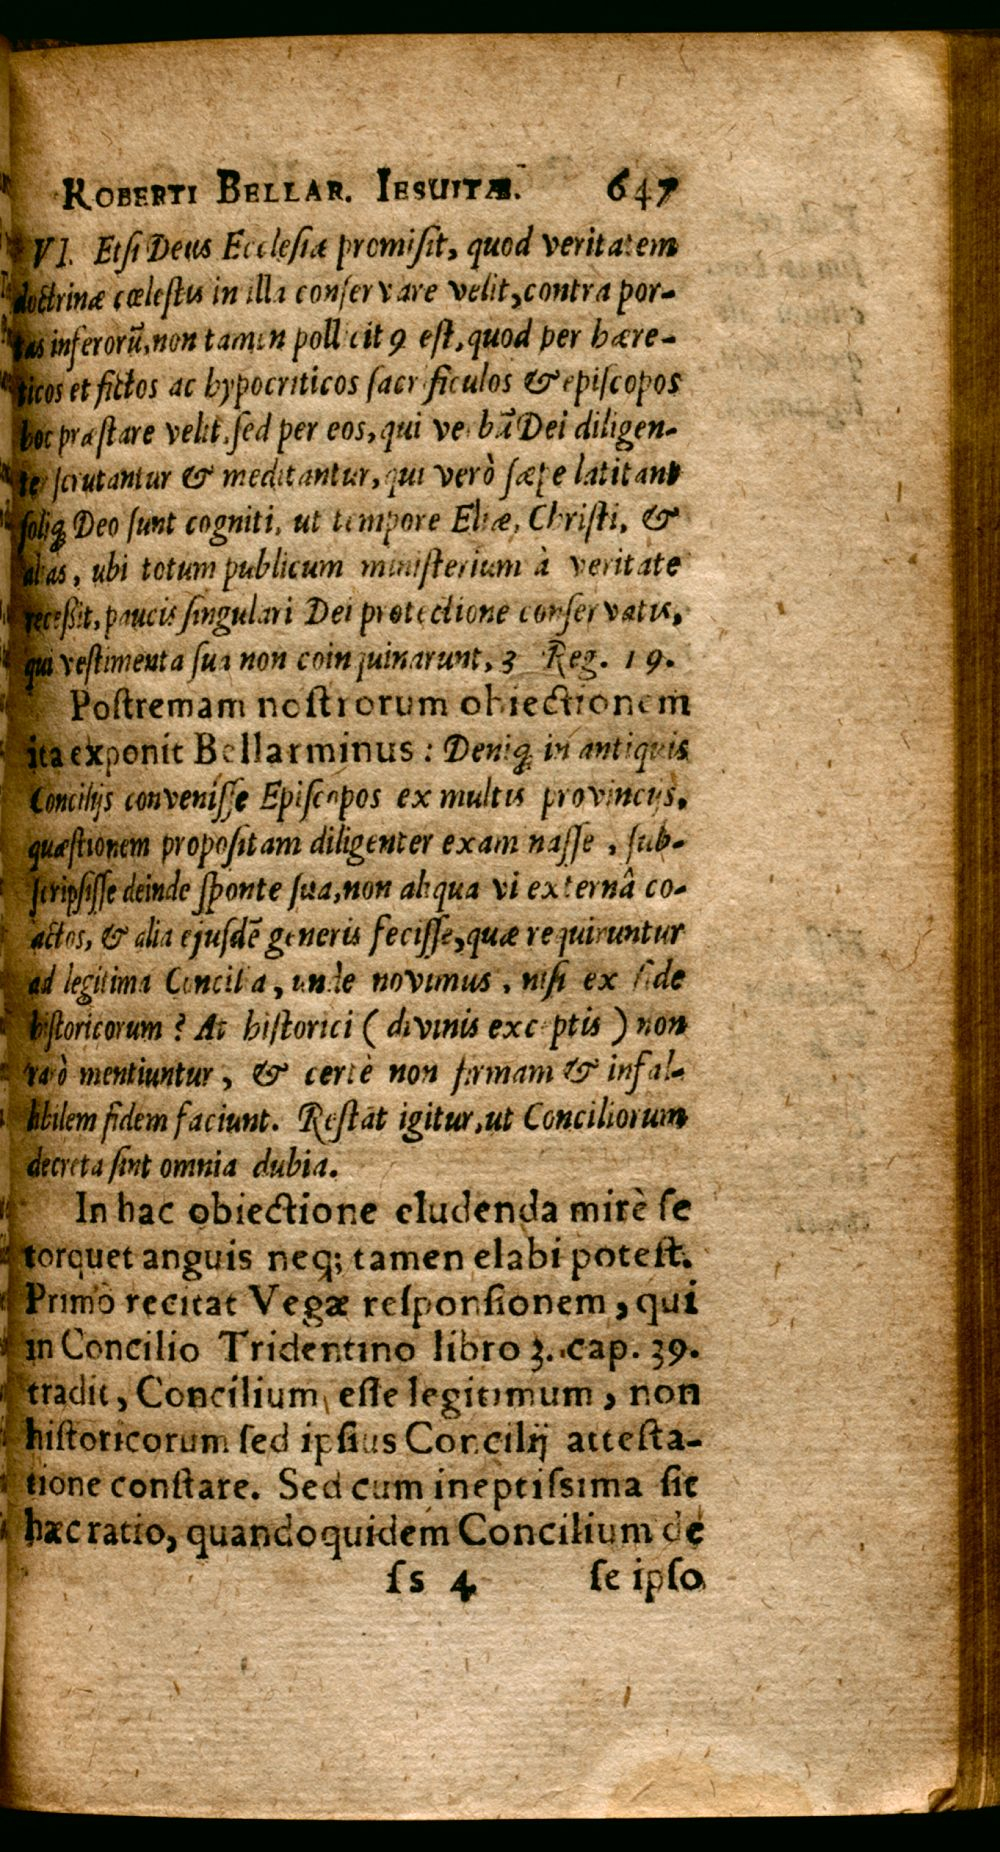 ROBERTI BELLAR. IESUITÆ. 647
VI. Etsi Deus Ecclesiæ promisit, quod veritatem
doctrinæ cœlestis in illa conservare velit, contra por-
tas inferorũ, non tamen pollicit9 est, quod per hære-
ticos et fictos ac hypocriticos sacrificulos & episcopos
hoc præstare velit, sed per eos, qui verbũ Dei diligen-
ter scrutantur & meditantur, qui verò sæpe latitant
soliq; Deo sunt cogniti, ut tempore Eliæ, Christi, &
alias, ubi totum publicum ministerium à veritate
recessit, paucis singulari Dei protectione conservatis,
qui vestimenta sua non coinquinarunt, 3 Reg. 19.
Postremam nostrorum obiectionem
ita exponit Bellarminus: Deniq; in antiquis
Concilijs convenisse Episcopos ex multis provincijs,
quæstionem propositam diligenter examinasse, sub-
scripsisse deinde sponte sua, non aliqua vi externâ co-
actos, & alia ejusdẽ generis fecisse, quæ requiruntur
ad legitima Concilia, unde novimus, nisi ex fide
historicorum? At historici (divinis exceptis) non
rarò mentiuntur, & certè non firmam & infal-
libilem fidem faciunt. Restat igitur, ut Conciliorum
decreta sint omnia dubia.
In hac obiectione eludenda mirè se
torquet anguis neq; tamen elabi potest.
Primò recitat Vegæ responsionem, qui
in Concilio Tridentino libro 3. cap. 39.
tradit, Concilium esse legitimum, non
historicorum sed ipsius Concilij attesta-
tione constare. Sed cum ineptissima sit
hæc ratio, quandoquidem Concilium de
ss 4 se ipso